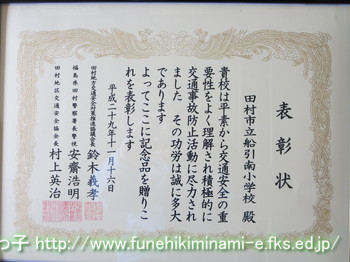 表彰状
田村市立船引南小学校 殿
貴校は平素から交通安全の重
要性をよく理解され積極的に
交通事故防止活動に尽力され
ました その功労は誠に多大
であります
よってここに記念品を贈りこ
れを表彰します
平成二十九年十一月十六日
田村地方交通安全対策推進協議会長 鈴木義孝
福島県田村警察署長警視 安齋浩明
田村地区交通安全協会長 村上英治
っ子 http://www.funehikiminami-e.fks.ed.jp/